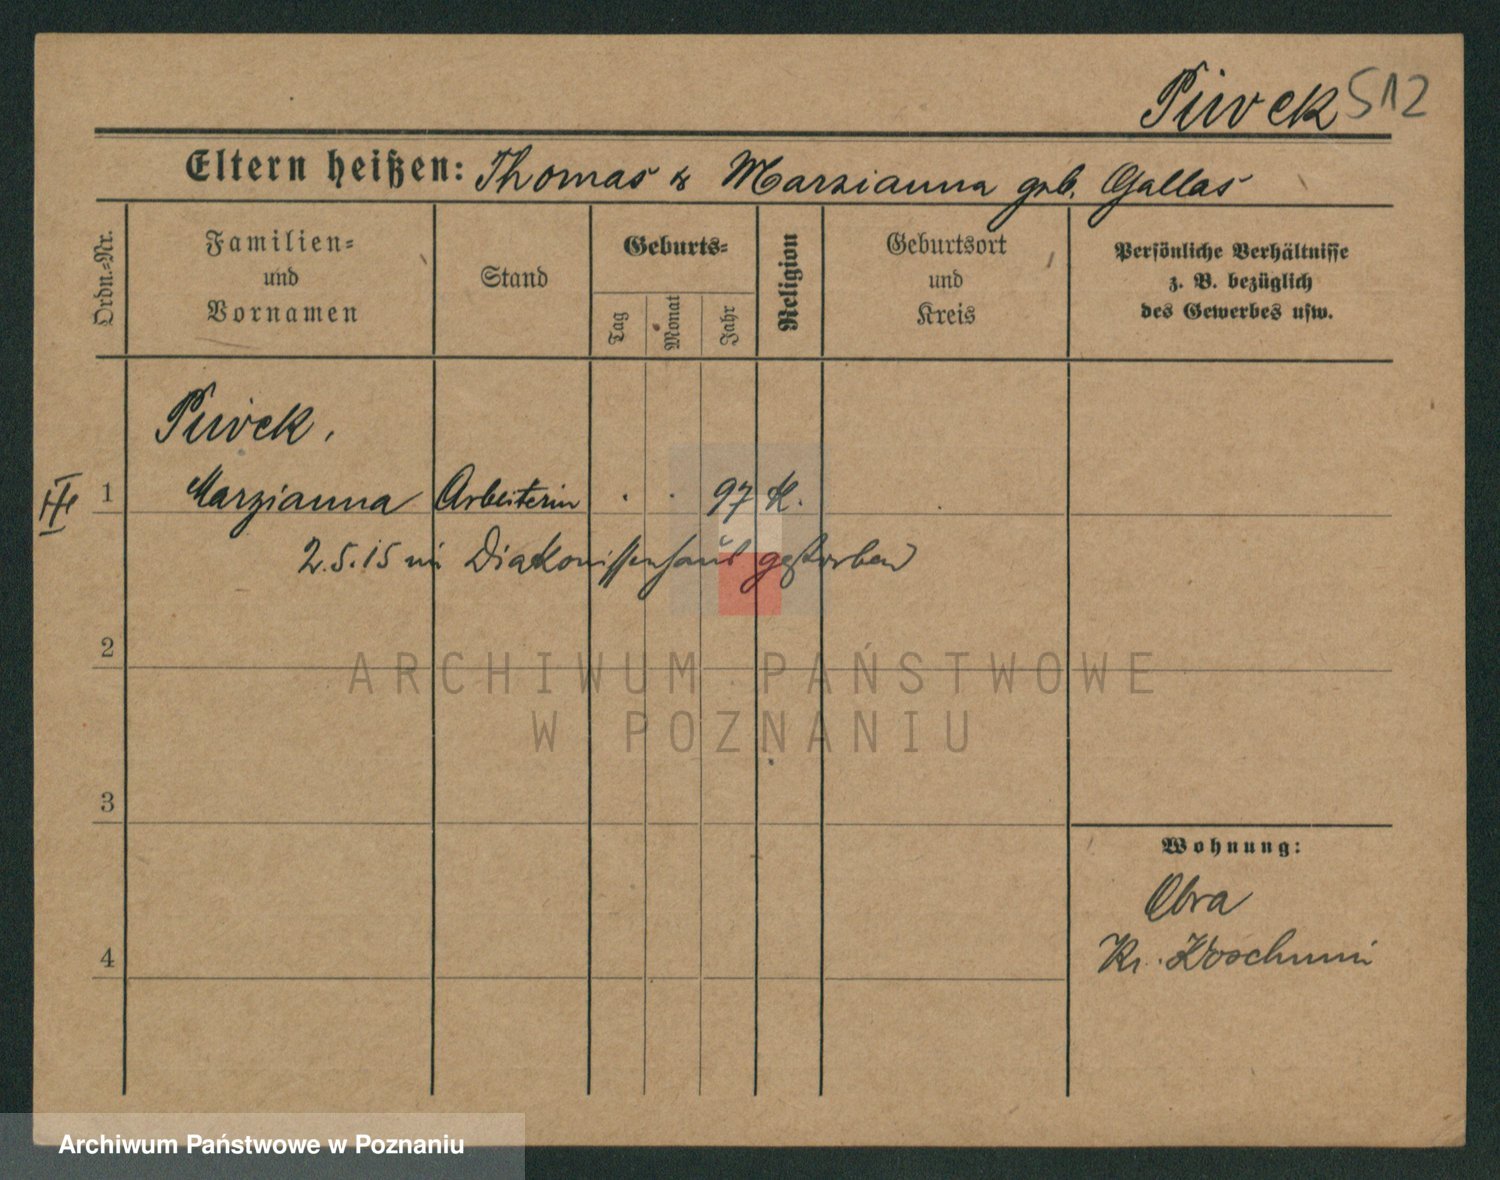 Piwek 512
Eltern heißen: Thomas & Marzianna geb. Gallas
Ordn.=Nr.
Familien=
und
Vornamen
Stand
Geburts=
Tag
Monat
Jahr
Religion
Geburtsort
und
Kreis
Persönliche Verhältnisse
z. B. bezüglich
des Gewerbes usw.
Piwek,
1 Marzianna Arbeiterin . . 97 K.
2.5.15 im Diakonissenhaus gestorben
2
3
4
Wohnung:
Obra
Kr. Koschmin
ARCHIWUM PAŃSTWOWE
W POZNANIU
Archiwum Państwowe w Poznaniu